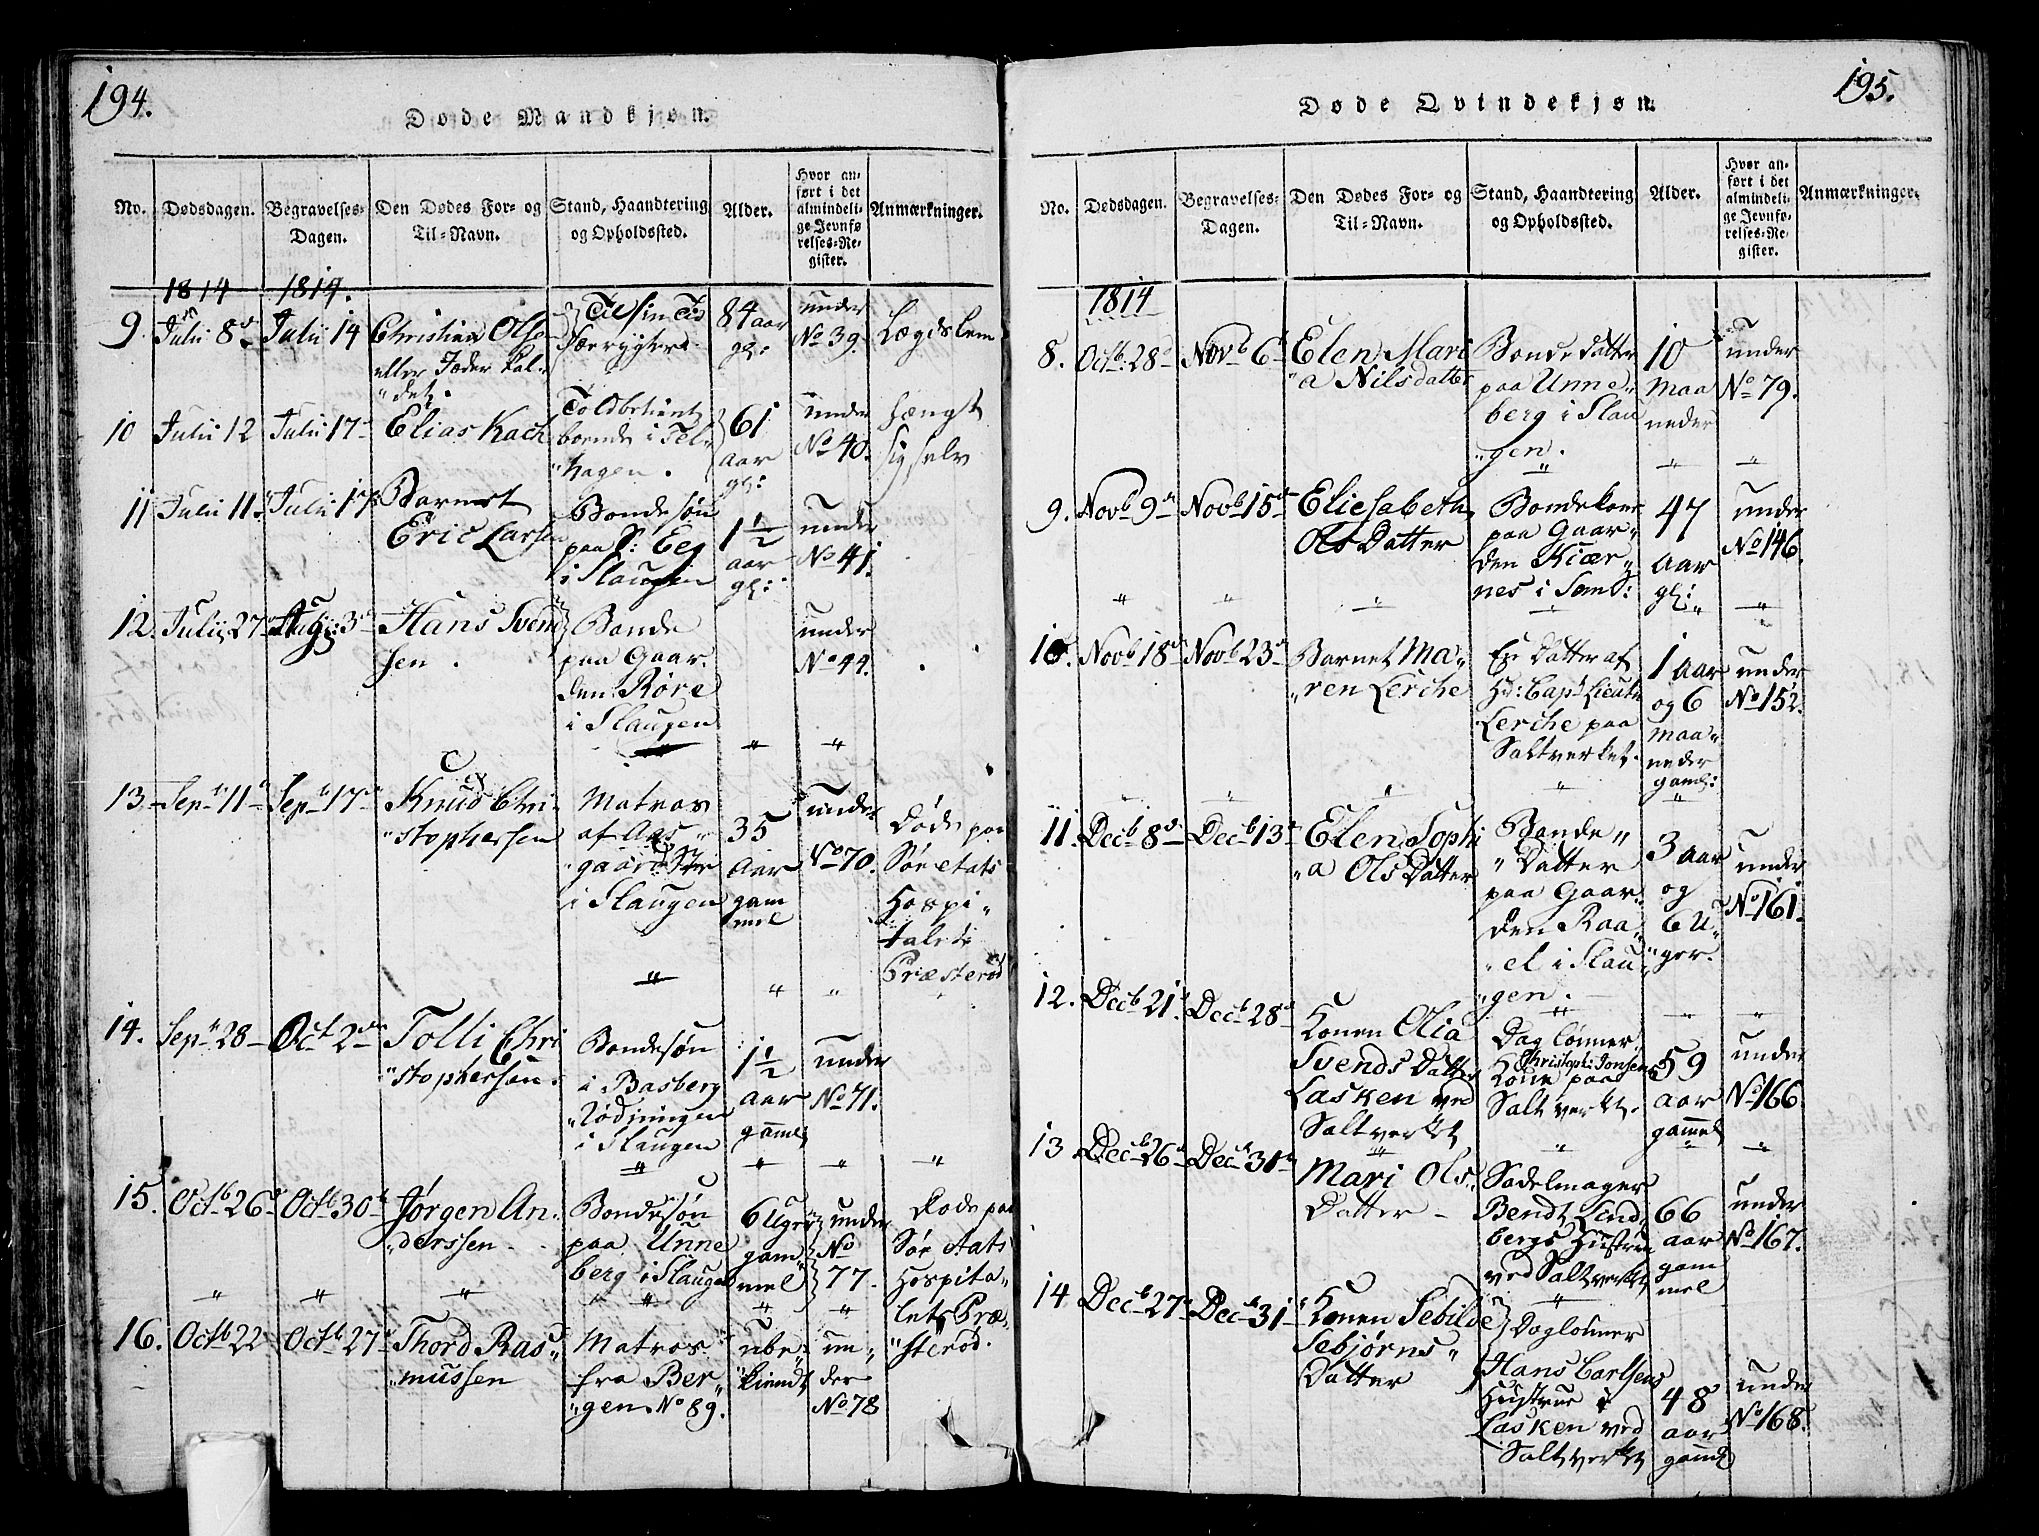 194.
Døde Mandkjøn.
No.
Dødsdagen.
Begravelses-
Dagen.
Den Dødes For- og
Til-Navn.
Stand, Haandtering
og Opholdssted.
Alder.
Hvor an-
ført i det
almindeli-
ge Jevnfø-
relses-Re-
gister.
Anmærkninger.
1814
1814.
9
Julii 8de
Julii 14
Christian Olse
eller
Til sin Tid
84 aar
gl:
under
No 39.
Lægdslem
10
Julii 12
Julii 17
Elias Kach
Toldbetient
boende i Tel-
hagen.
61
aar
gl:
under
No 40.
hængt
sig selv
11
Julii 11.
Julii 17
Barnet
Eric Larsen
Bondesøn
paa S: Eeg
i Slaugen
1 1/2
aar
gl:
under
No 41.
12.
Julii 27
Aug: 3
Hans Svend
sen.
Bonde
paa Gaar-
den Røre
i Slaugen
under
No 44.
13
Sept 11
Sept 17
Knud Chri
"stophersen
Matros
af Aas"
"gaard
i Slaugen
35
Aar
gam
mel
under
No 70.
Døde paa
Søe etats
Hospi"
talet
Præsterød
14.
Sept 28
Oct 2
Tolli Chri
"stophersen.
Bondesøn
i Basberg
Rødningen
i Slaugen
1 1/2
aar
gaml
under
No 71.
15.
Octb 26
Octb 30
Jørgen An-
"derssen.
Bondesøn
paa Unne
berg i Slaugen
6 Uger
gam
mel
under
No
77.
Døde paa
Søe etats
Hospita"
lets Præ
"sterød.
16.
Octb 22
Octb 27
Thord Ras"
"mussen
Matros
fra Ber"
"gen. No 89.
ube"
kiendt
un"
der
No 78
195.
Døde Qvindekjøn.
No.
Dødsdagen.
Begravelses-
Dagen.
Den Dødes For- og
Til-Navn.
Stand, Haandtering
og Opholdssted.
Alder.
Hvor an-
ført i det
almindeli-
ge Jevnfø-
relses-Re-
gister.
Anmærkninger.
1814
8.
Octb: 28
Novb 6
Elen Mari
"a Nilsdatter
Bondedatter
paa Unne"
berg i Slau
"gen.
10
maa
neder
under
No 79.
9.
Novb 9
Novb 15
Eliesabeth
Ols Datter
Bondekone
paa Gaar"
den Kiær"
nes i Sem S:
47
Aar
gl:
under
No 146.
10.
Novb 18
Novb 23
Barnet Ma"
"ren Lerche
En Datter af
Hd: Capt Lieutn
Lerche paa
Saltverket.
1 aar
og 6
maa"
neder
gaml:
under
No 152.
11.
Decb 8
Decb 13
Elen Sophi
"a Ols Datter
Bonde"
"Datter
paa Gaar"
den Raa"
"el i Slau"
"gen.
3 aar
og
6 U"
"ger.
under
No 161.
12.
Decb 21
Decb 28
Konen Olia
Svends Datter
Lasken ved
Saltverket
Dag lønner
Christoph: Jonsens
Kone paa
Saltverket.
59
aar
gammel
under
No 166.
13
Decb 26
Decb 31
Mari Ols"
Datter
Sadelmager
Bendt Lind"
bergs Hustrue
ved Saltverket
66
aar
gam
mel
under
No 167.
14
Decb 27
Decb 31
Konen Sebilde
Sebjørns"
Datter
Daglønner
Hans Carlsens
Hustrue i
Lasken ved
Saltverket
48
aar
gaml
under
No 168.